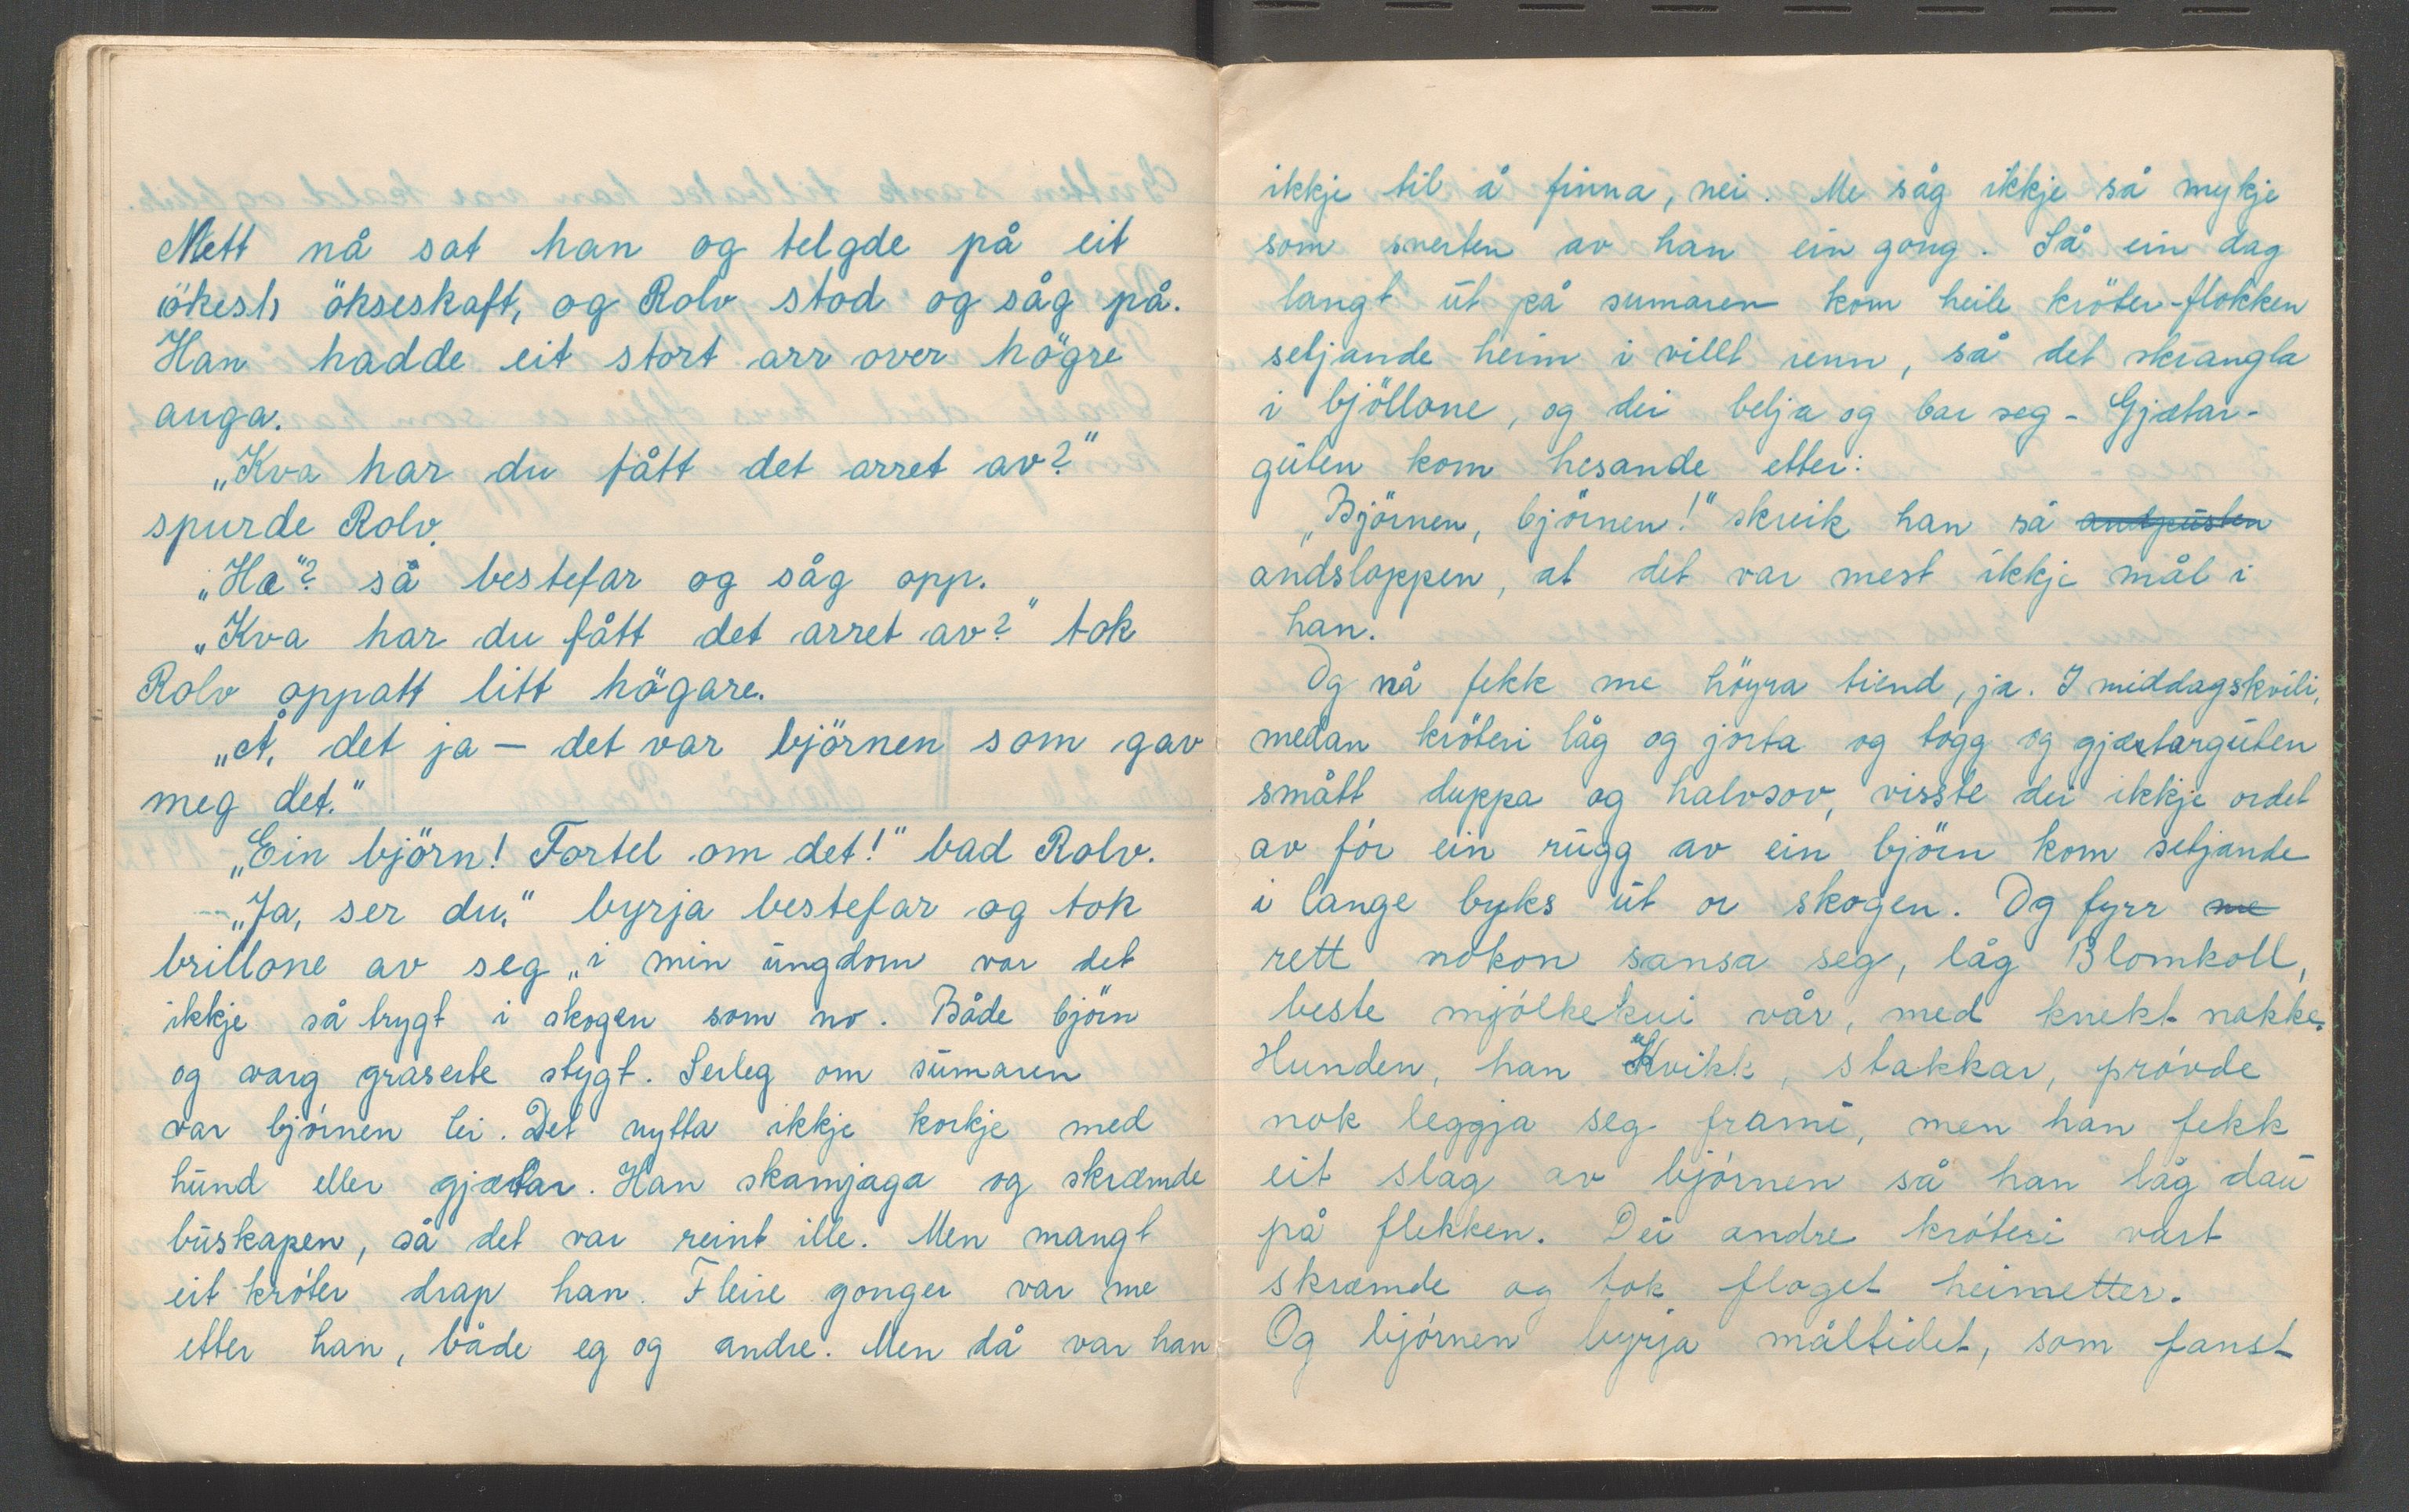 Mett nå sat han og telgde på eit
ökseskaft, og Rolv stod og såg på.
Han hadde eit stort arr over högre
auga.
„Kva har du fått det arret av?"
spurde Rolv.
„Ha"? så bestefar og såg opp.
„Kva har du fått det arret av?" tok
Rolv oppatt litt högare.
„Å, det ja — det var björnen som gav
meg det."
„Ein björn! Fortel om det!" bad Rolv.
„Ja, ser du," byrja bestefar og tok
brillone av seg „i min ungdom var det
ikkje så trygt i skogen som no. Både björn
og varg graserte stygt. Serleg om sumaren
var björnen lei. Det nytta ikkje korkje med
hund eller gjætar. Han skamjaga og skræmde
buskapen, så det var reint ille. Men mangt
eit kröter drap han. Fleire gonger var me
etter han, både eg og andre. Men då var han
ikkje til å finna, nei. Me såg ikkje så mykje
som snerten av han ein gong. Så ein dag
langt ut på sumaren kom heile kröter-flokken
seljande heim i villt renn, så det skrangla
i bjöllone, og dei belja og bar seg - Gjætar-
guten kom hesande etter:
„Björnen, björnen!" skreik han så andpusten
andsloppen, at det var mest ikkje mål i
han.
Og nå fekk me höyra tiend, ja. I middagskvili,
medan kröteri låg og jorta og togg og gjætarguten
smått duppa og halvsov, visste dei ikkje ordet
av för ein rugg av ein björn kom setjande
i lange byks ut or skogen. Og fyrr me
rett nokon sansa seg, låg Blomkoll,
beste mjölkekui vår, med knekt nakke.
Hunden, han Kvikk, stakkar, prövde
nok leggja seg frami, men han fekk
eit slag av björnen så han låg dau
på flekken. Dei andre kröteri vart
skræmde og tok floget heimetter.
Og björnen byrja måltidet, som fanst